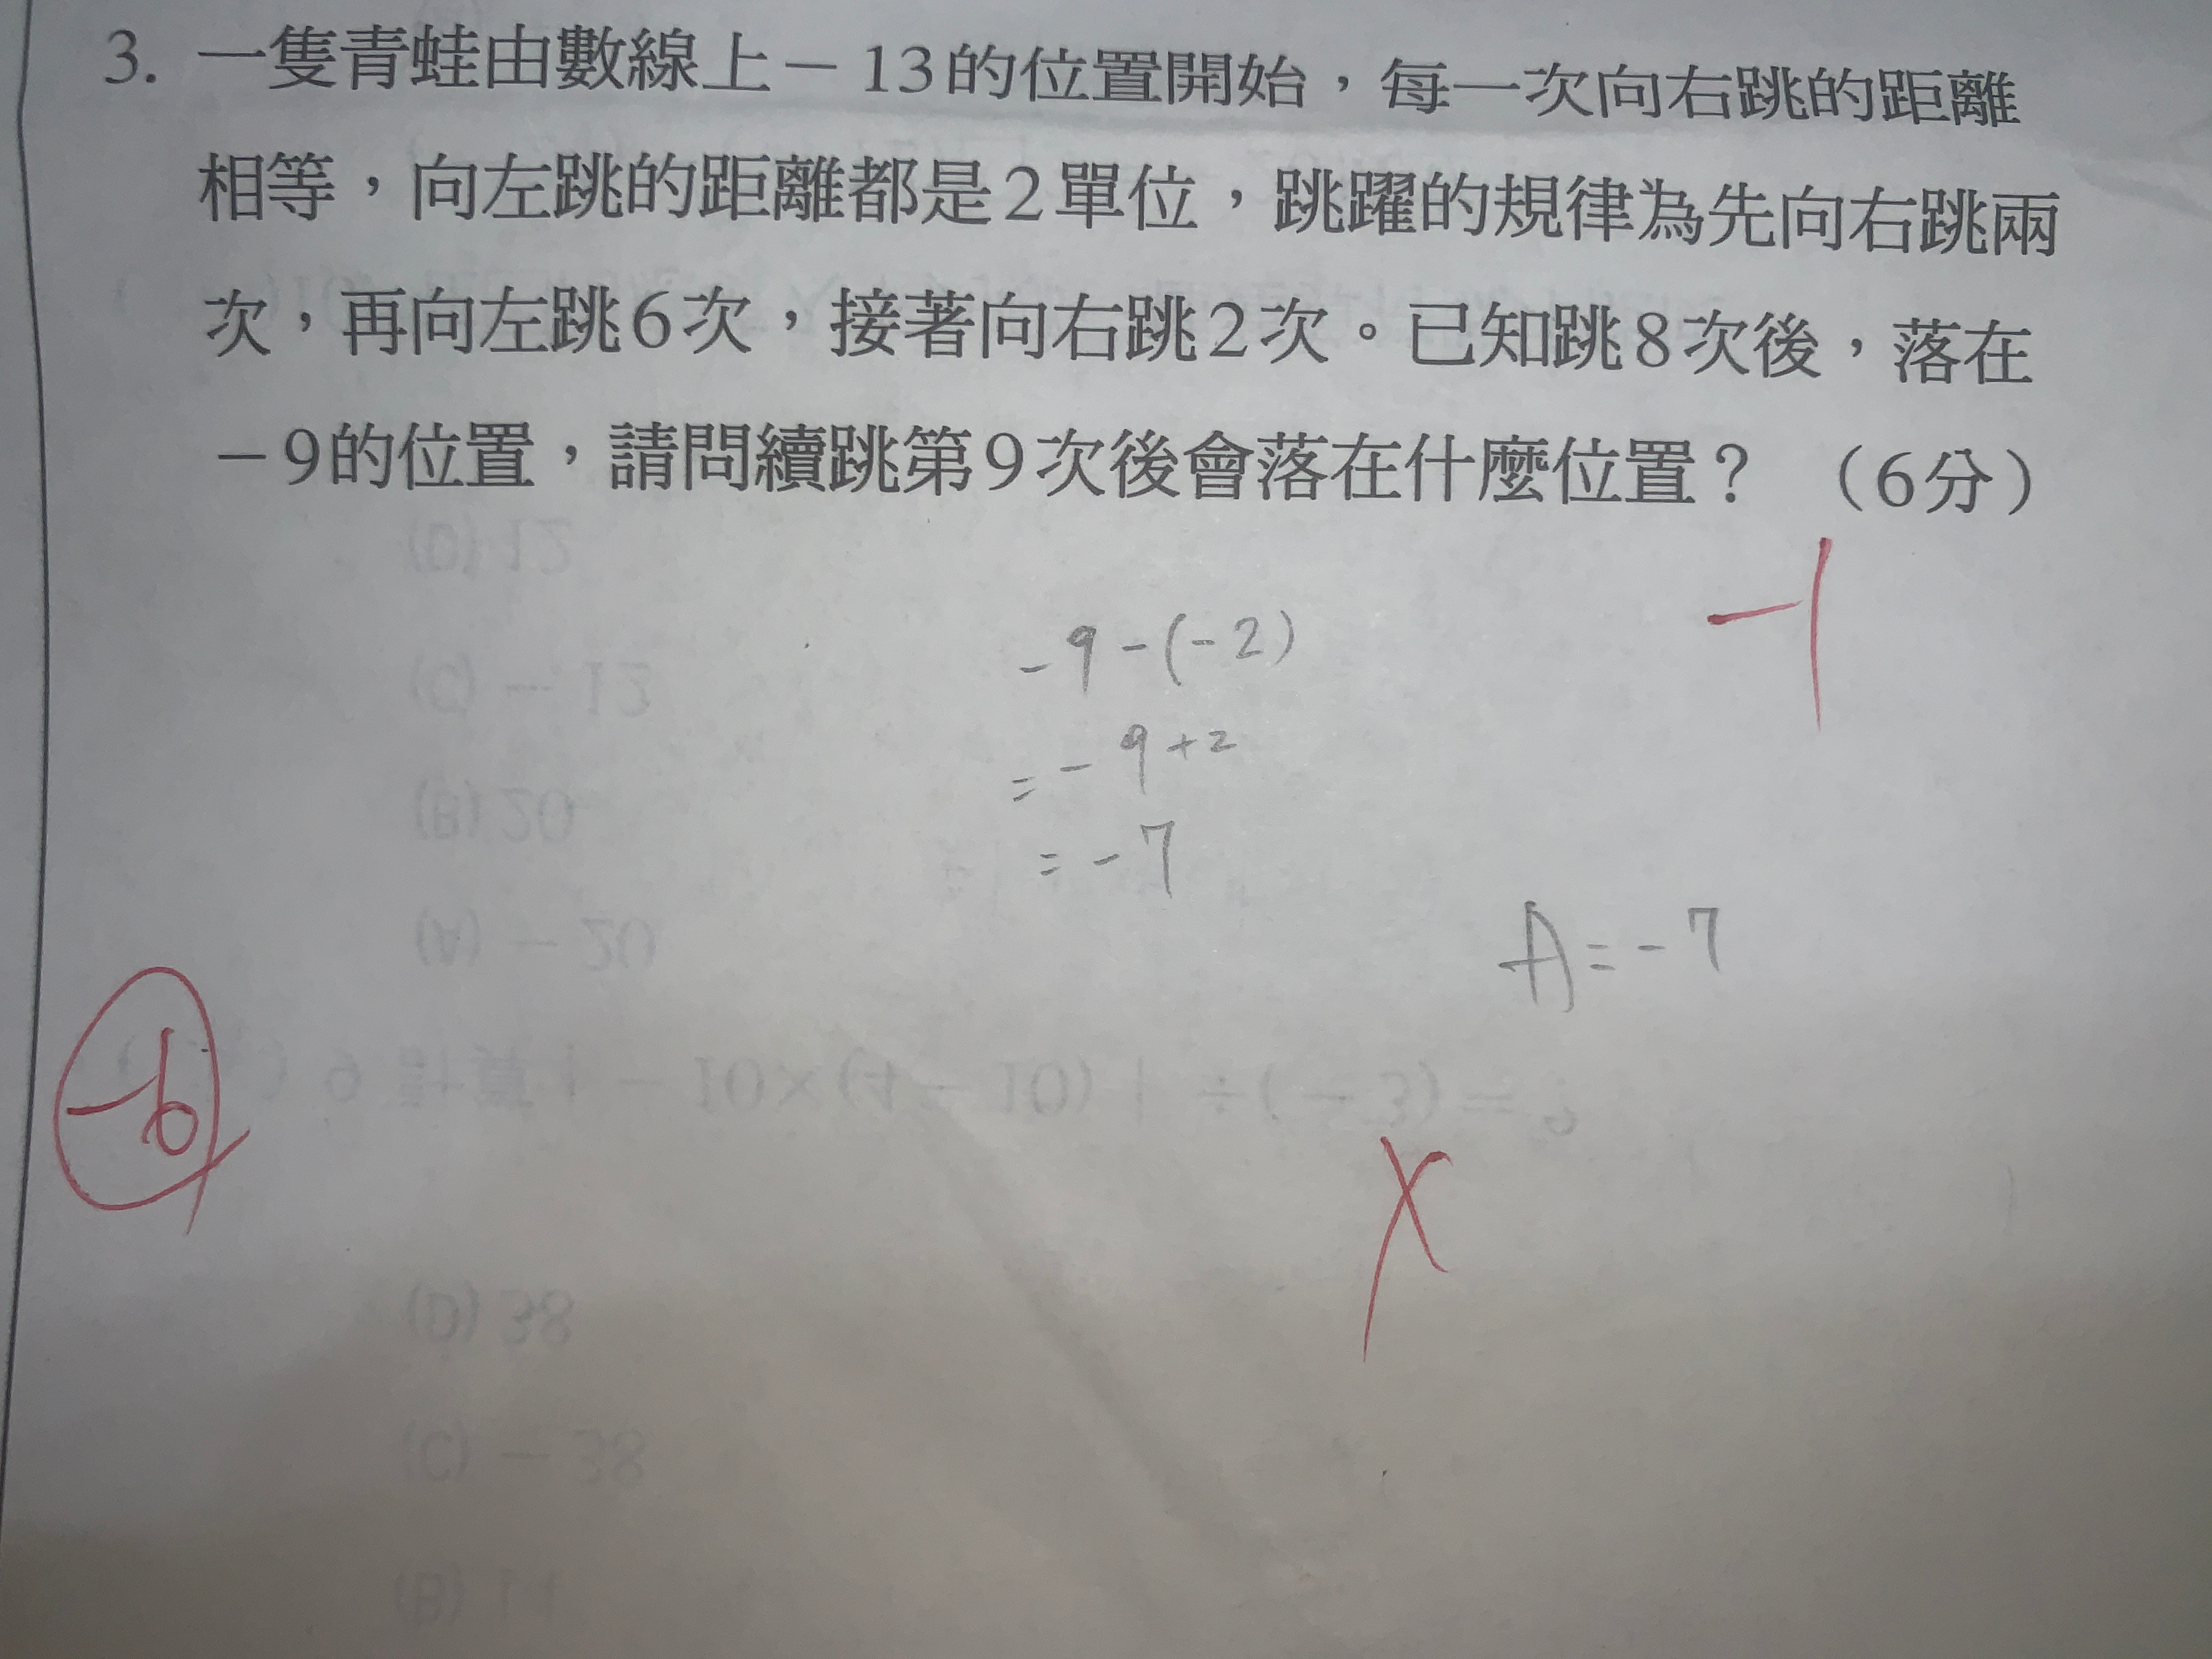 3. 一隻青蛙由數線上－13的位置開始，每一次向右跳的距離
相等，向左跳的距離都是2單位，跳躍的規律為先向右跳兩
次，再向左跳6次，接著向右跳2次。已知跳8次後，落在
－9的位置，請問續跳第9次後會落在什麼位置？（6分）
-1
-9-(-2)
=-9+2
=-7
A=-7
-6
(D) 12
(C) －12
(B) 20
(A) －20
9 計算|－10×(4－10)|÷(－3)=?
(D) 38
(C) －38